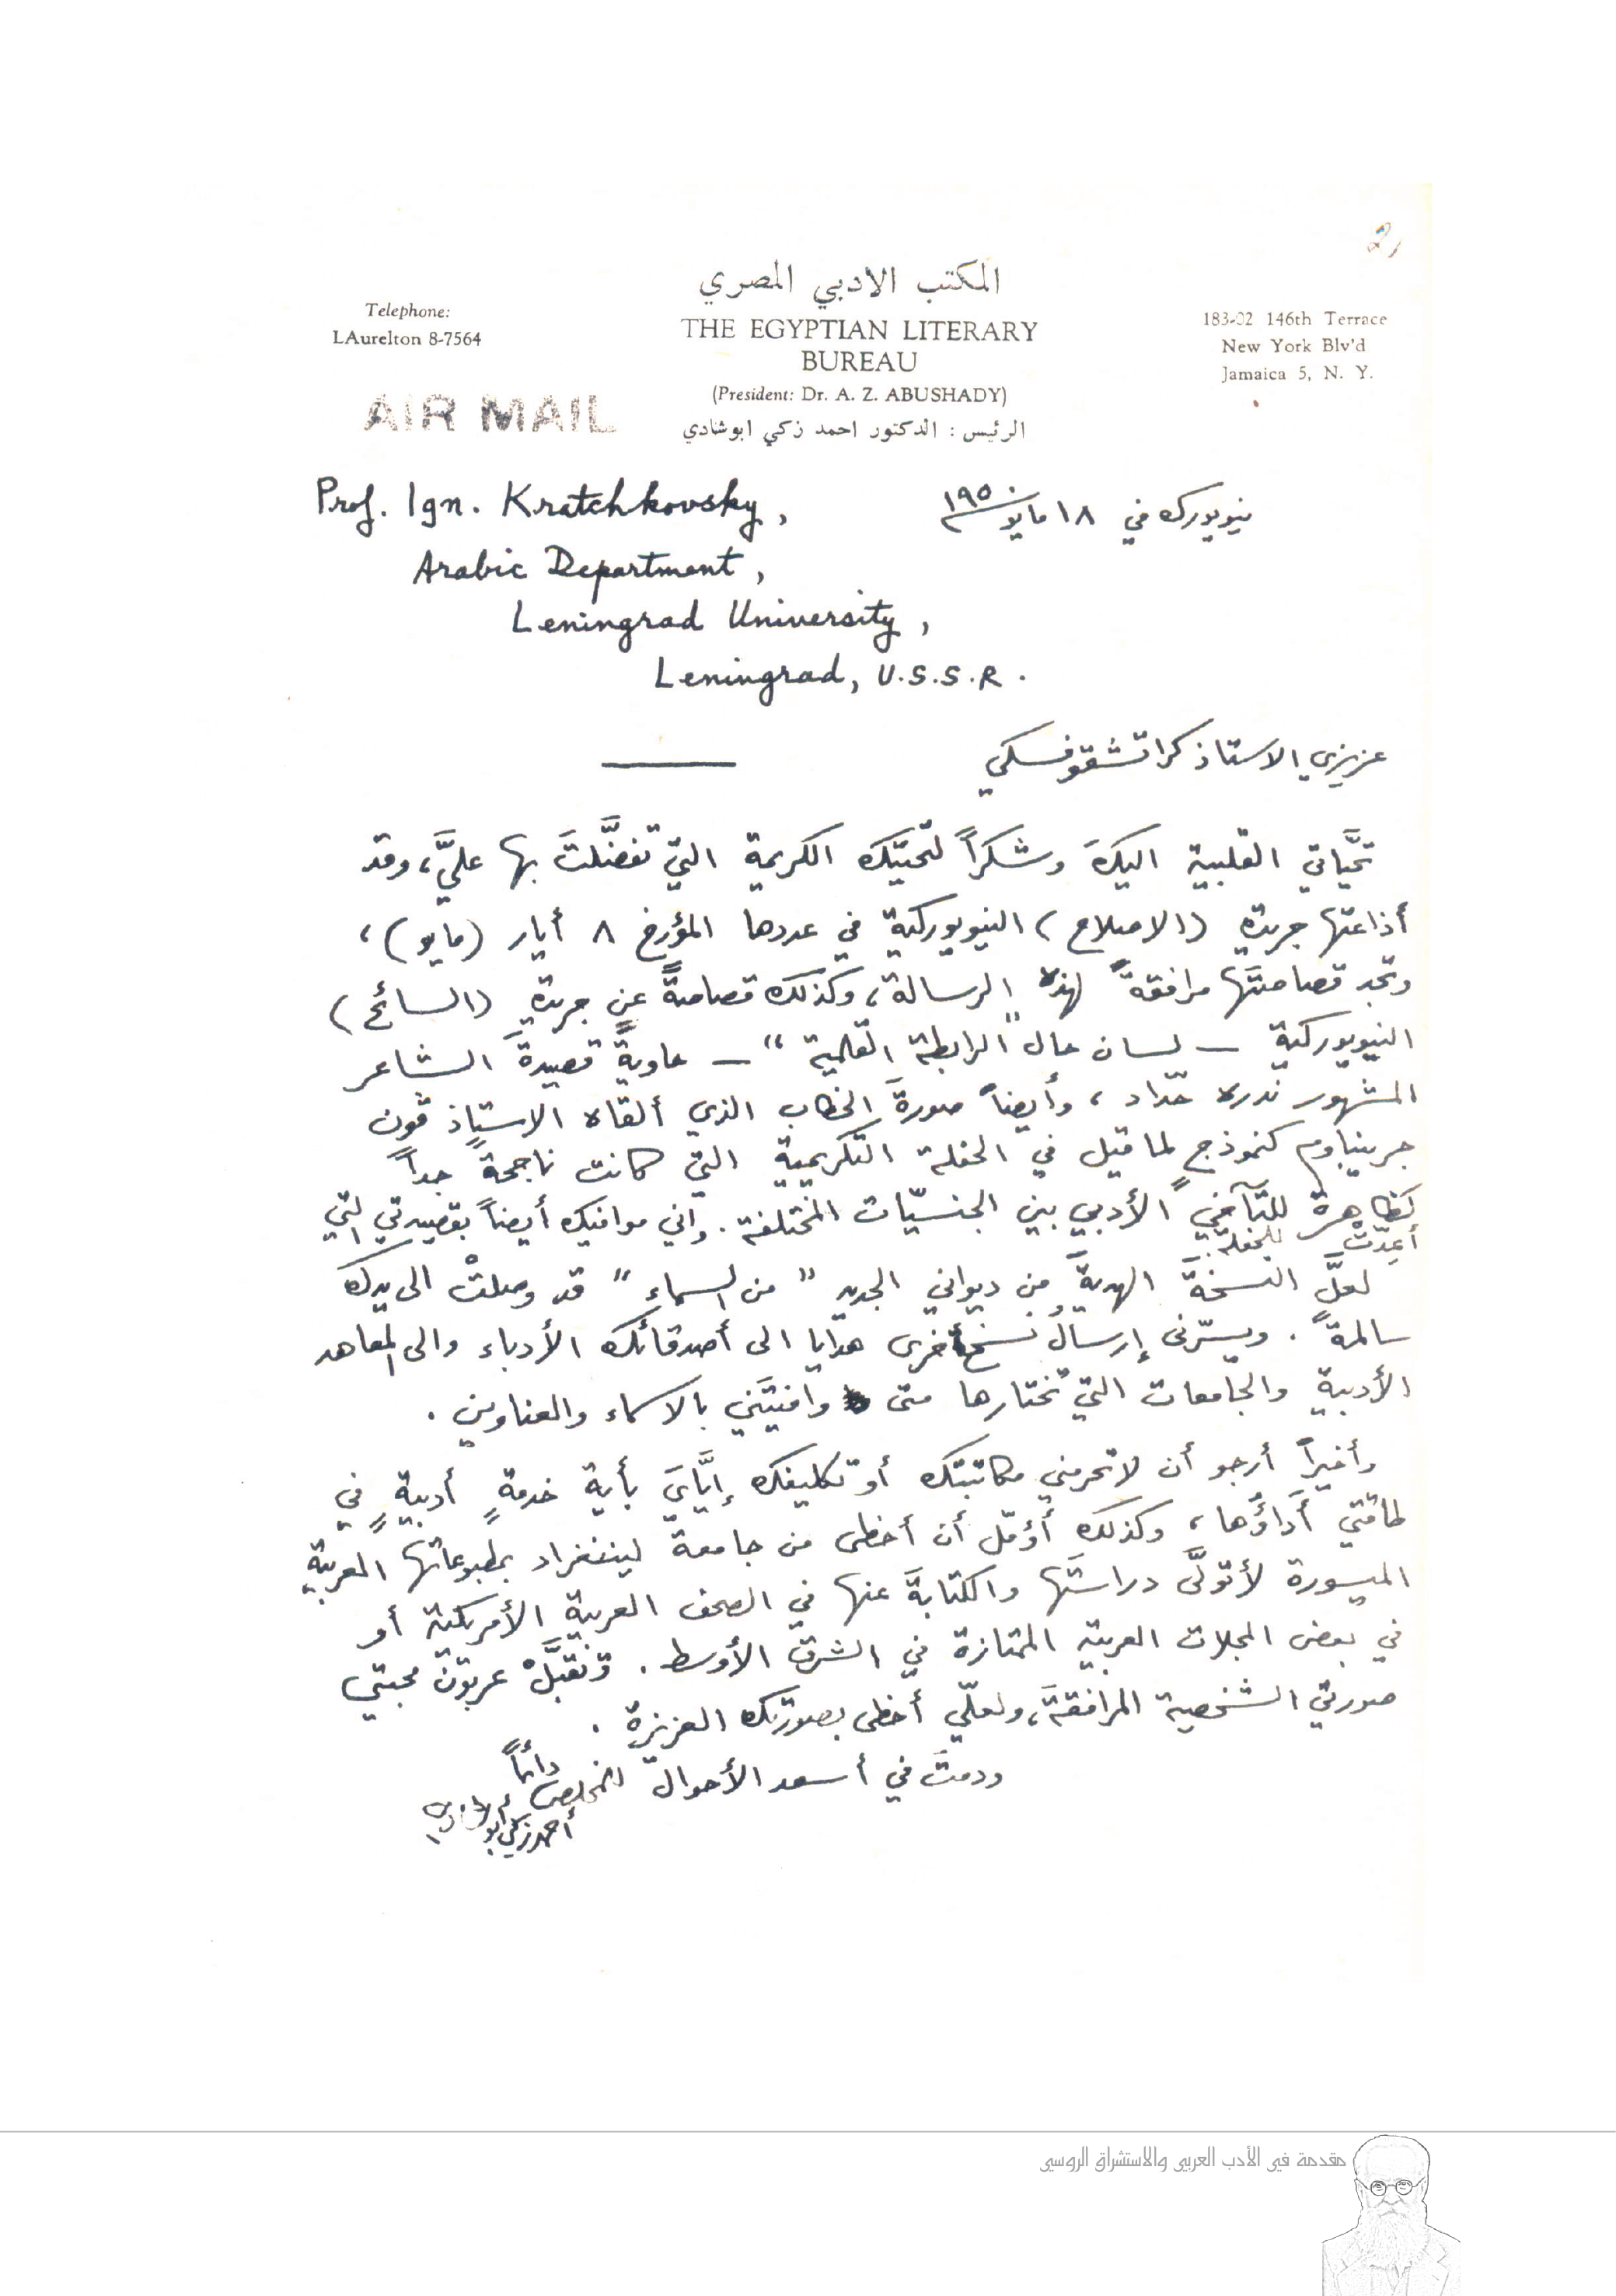 2,
المكتب الادبي المصري
THE EGYPTIAN LITERARY
BUREAU
(President: Dr. A. Z. ABUSHADY)
الرئيس : الدكتور احمد زكي ابوشادي
Telephone:
LAurelton 8-7564
AIR MAIL
183-02 146th Terrace
New York Blv'd
Jamaica 5, N. Y.
نيويورك في ١٨ مايو ١٩٥٠
Prof. Ign. Kratchkovsky,
Arabic Department,
Leningrad University,
Leningrad, U.S.S.R.
عزيزي الاستاذ كراتشقوفسكي
تحيَّاتي القلبية اليكَ وشكراً لتحيّتك الكريمة التي تفضَّلتَ بها عليَّ، وقد
أذاعتها جريدة (الاصلاح) النيويوركية في عددها المؤرخ ٨ أيار (مايو)،
وتجد قصاصتَها مرافقةً لهذه الرسالة، وكذلك قصاصةً عن جريدة (السائح)
النيويوركية – لسان حال "الرابطة القلمية" – حاويةً قصيدةَ الشاعر
المشهور ندره حدّاد، وأيضاً صورةَ الخطاب الذي ألقاه الاستاذ ڤون
جرينباوم كنموذجٍ لما قيل في الحفلة التكريمية التي كانت ناجحة جداً
كظاهرةٍ للتآخي الأدبي بين الجنسيّات المختلفة. واني موافيك أيضاً بقصيدتي التي
أعِدّتْ للحفلة.
لعلَّ النسخةَ الهديةَ من ديواني الجديد "من السماء" قد وصلتْ الى يدك
سالمةً. ويسرّنى إرسالُ نسخٍ أخرى هدايا الى أصدقائك الأدباء والى المعاهد
الأدبية والجامعات التي تختارها متى وافيتَني بالاسماء والعناوين.
وأخيراً أرجو أن لا تحرمني مكاتبتك أو تكليفك إيَّايَ بأية خدمةٍ أدبيةٍ في
طاقتي أداؤها، وكذلك أؤمّل أن أحظى من جامعة لينينغراد بمطبوعاتها العربية
الميسورة لأتولَّى دراستَها والكتابةَ عنها في الصحف العربية الأمريكية أو
في بعض المجلات العربية الممتازة في الشرق الأوسط. وتقبَّلْ عربون محبتي
صورتي الشخصية المرافقة، ولعلّي أحظى بصورتك العزيزة.
ودمتَ في أسعد الأحوال للمخلص دائماً
أحمد زكي أبو شادي
مقدمة في الأدب العربي والاستشراق الروسي